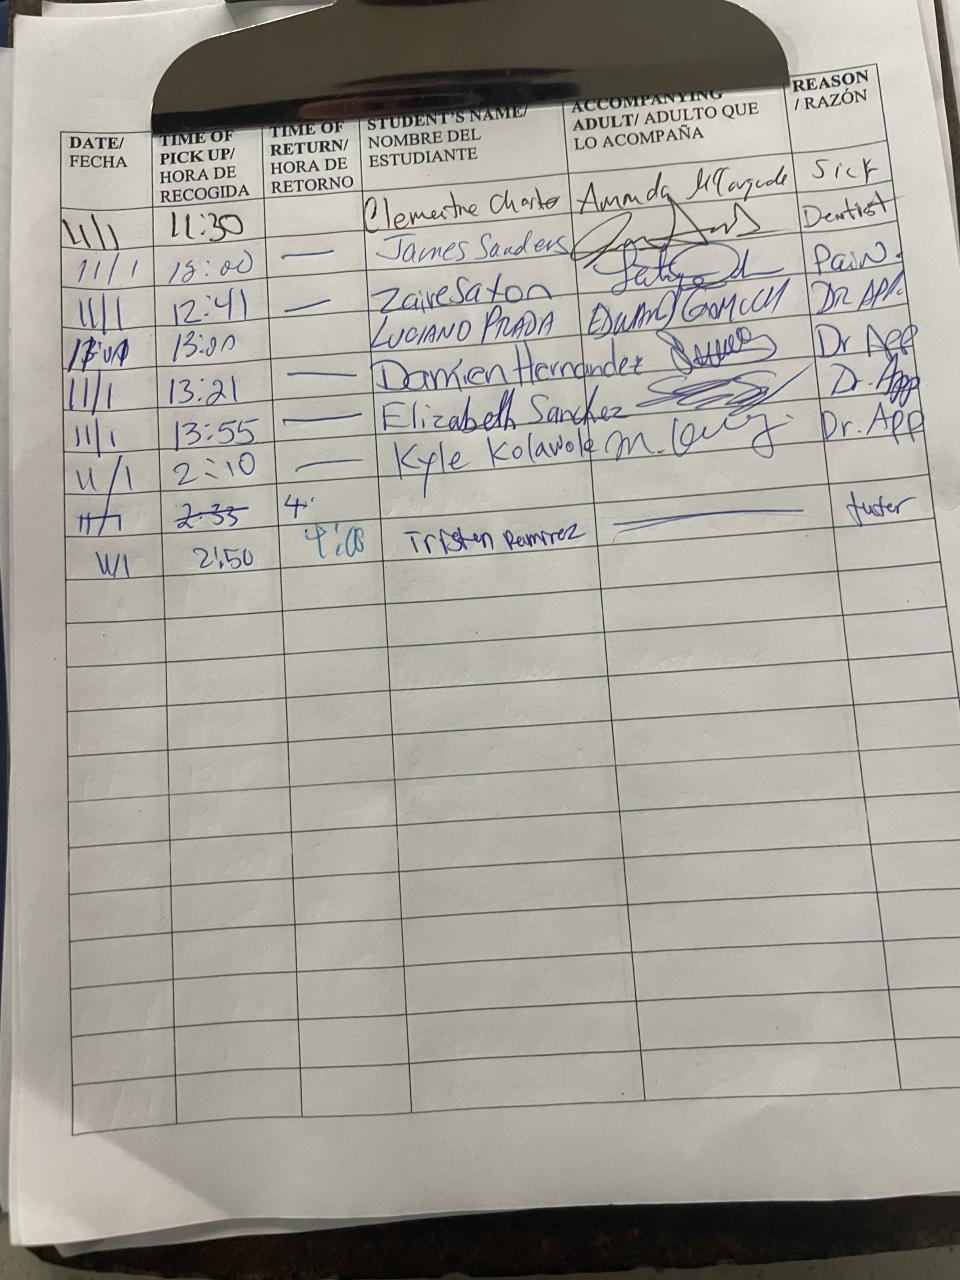 DATE/ FECHA
TIME OF PICK UP/ HORA DE RECOGIDA
TIME OF RETURN/ HORA DE RETORNO
STUDENT'S NAME/ NOMBRE DEL ESTUDIANTE
ACCOMPANYING ADULT/ ADULTO QUE LO ACOMPAÑA
REASON / RAZÓN
11/1 11:30 Clementine Amanda Sick
11/1 James Sanders Dentist
11/1 12:41 Zaire Saxon Pain.
13:00 LUCIANO PRADA DR APP.
11/1 13:21 Damien Hernandez Dr App
11/1 13:55 Elizabeth Sanchez Dr. App
11/1 2:10 Kyle Kolawole M. Dr. App
11/1 2:35 4:
11/1 2:50 4:00 Tristen Ramirez tutor